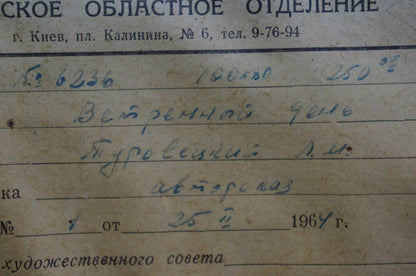 СКОЕ ОБЛАСТНОЕ ОТДЕЛЕНИЕ
г. Киев, пл. Калинина, № 6, тел. 9-76-94
№ 6236 100х80 250 00
Ветренный день
Туровецкий Л.М.
ка авторская
№ 1 от 25 II 1964 г.
художественного совета